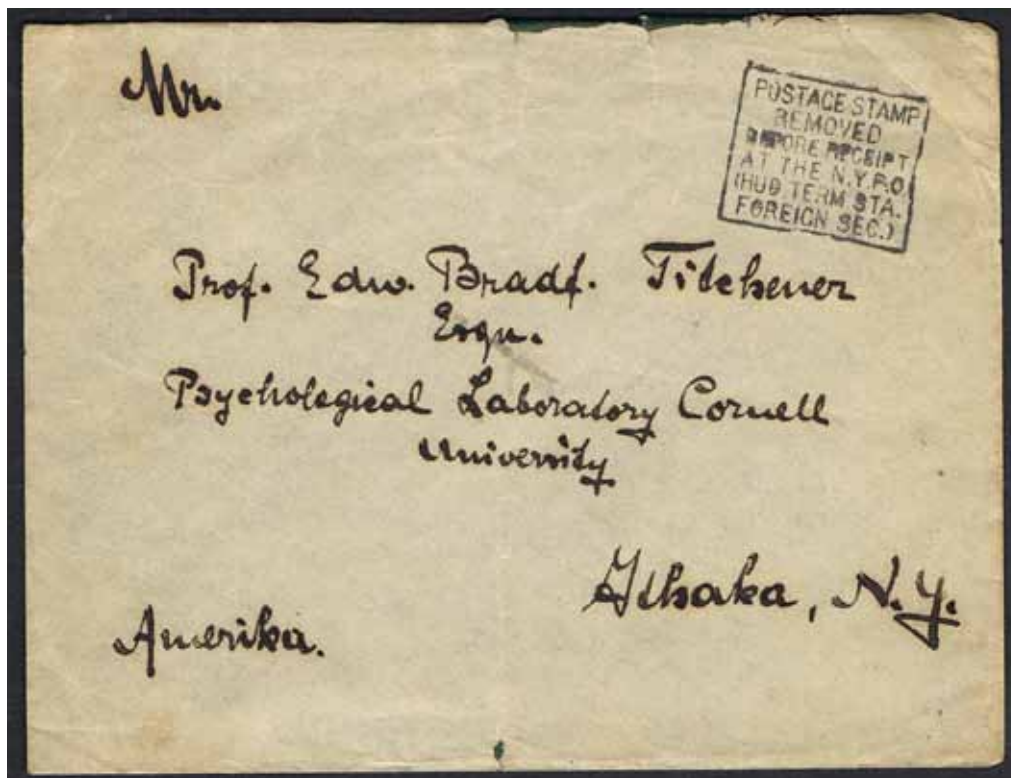 Mr.
POSTAGE STAMP
REMOVED
BEFORE RECEIPT
AT THE N.Y.P.O.
(HUD. TERM. STA.
FOREIGN SEC.)
Prof. Edw. Bradf. Titchener
Esqu.
Psychological Laboratory Cornell
University
Ithaka, N.Y.
Amerika.